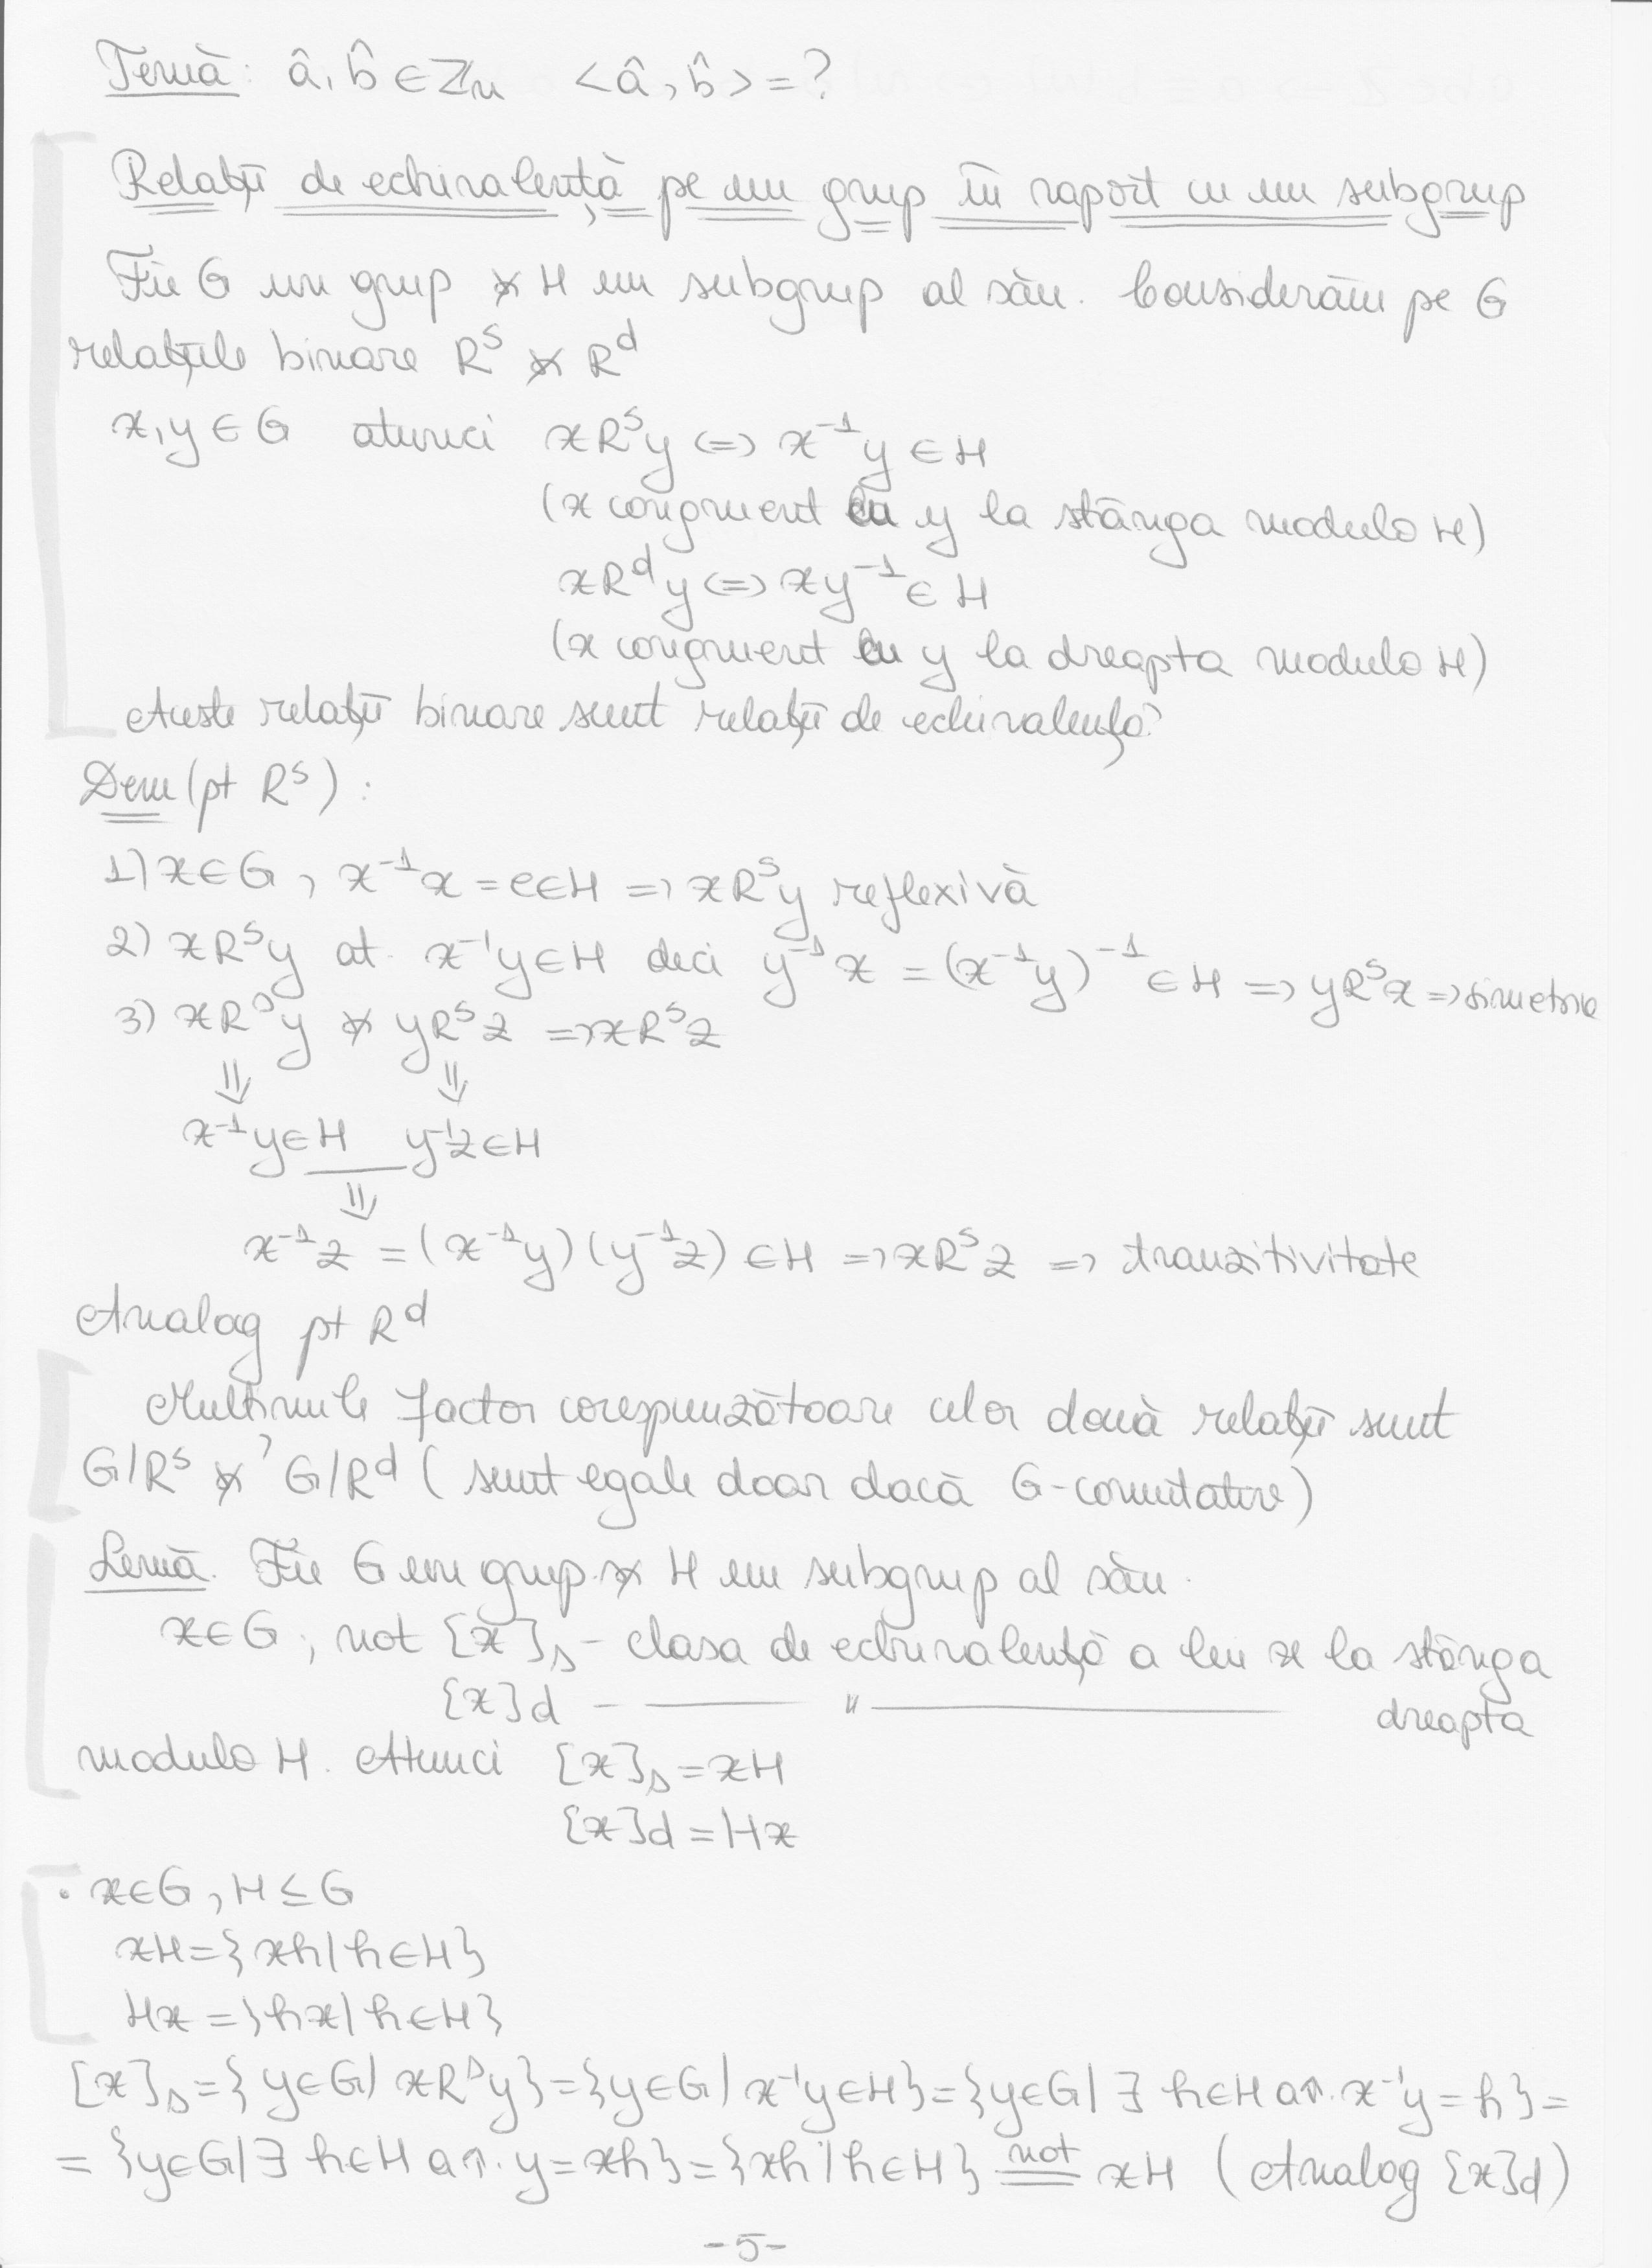 Temă: â, b̂ ∈ ℤn <â, b̂> = ?
Relații de echivalență pe un grup în raport cu un subgrup
Fie G un grup și H un subgrup al său. Considerăm pe G
relațiile binare R^s și R^d
x, y ∈ G atunci xR^s y <=> x^-1 y ∈ H
(x congruent cu y la stânga modulo H)
xR^d y <=> xy^-1 ∈ H
(x congruent cu y la dreapta modulo H)
Aceste relații binare sunt relații de echivalență
Dem (pt R^s) :
1) x ∈ G, x^-1 x = e ∈ H => xR^s y reflexivă
2) xR^s y at. x^-1 y ∈ H deci y^-1 x = (x^-1 y)^-1 ∈ H => yR^s x => simetrie
3) xR^s y și yR^s z => xR^s z
⇓ ⇓
x^-1 y ∈ H y^-1 z ∈ H
⇓
x^-1 z = (x^-1 y)(y^-1 z) ∈ H => xR^s z => tranzitivitate
Analog pt R^d
Mulțimile factor corespunzătoare celor două relații sunt
G/R^s și G/R^d (sunt egale doar dacă G-comutativ)
Lemă. Fie G un grup și H un subgrup al său.
x ∈ G, not [x]s - clasa de echivalență a lui x la stânga
[x]d - —— " —— dreapta
modulo H. Atunci [x]s = xH
[x]d = Hx
• x ∈ G, H ≤ G
xH = {xh | h ∈ H}
Hx = {hx | h ∈ H}
[x]s = {y ∈ G | xR^s y} = {y ∈ G | x^-1 y ∈ H} = {y ∈ G | ∃ h ∈ H a.î. x^-1 y = h} =
= {y ∈ G | ∃ h ∈ H a.î. y = xh} = {xh | h ∈ H} not= xH (Analog [x]d)
-5-